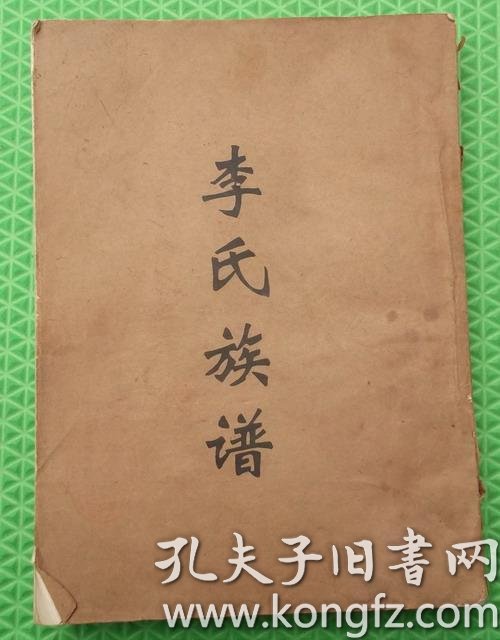 李氏族谱
孔夫子旧書网
www.kongfz.com